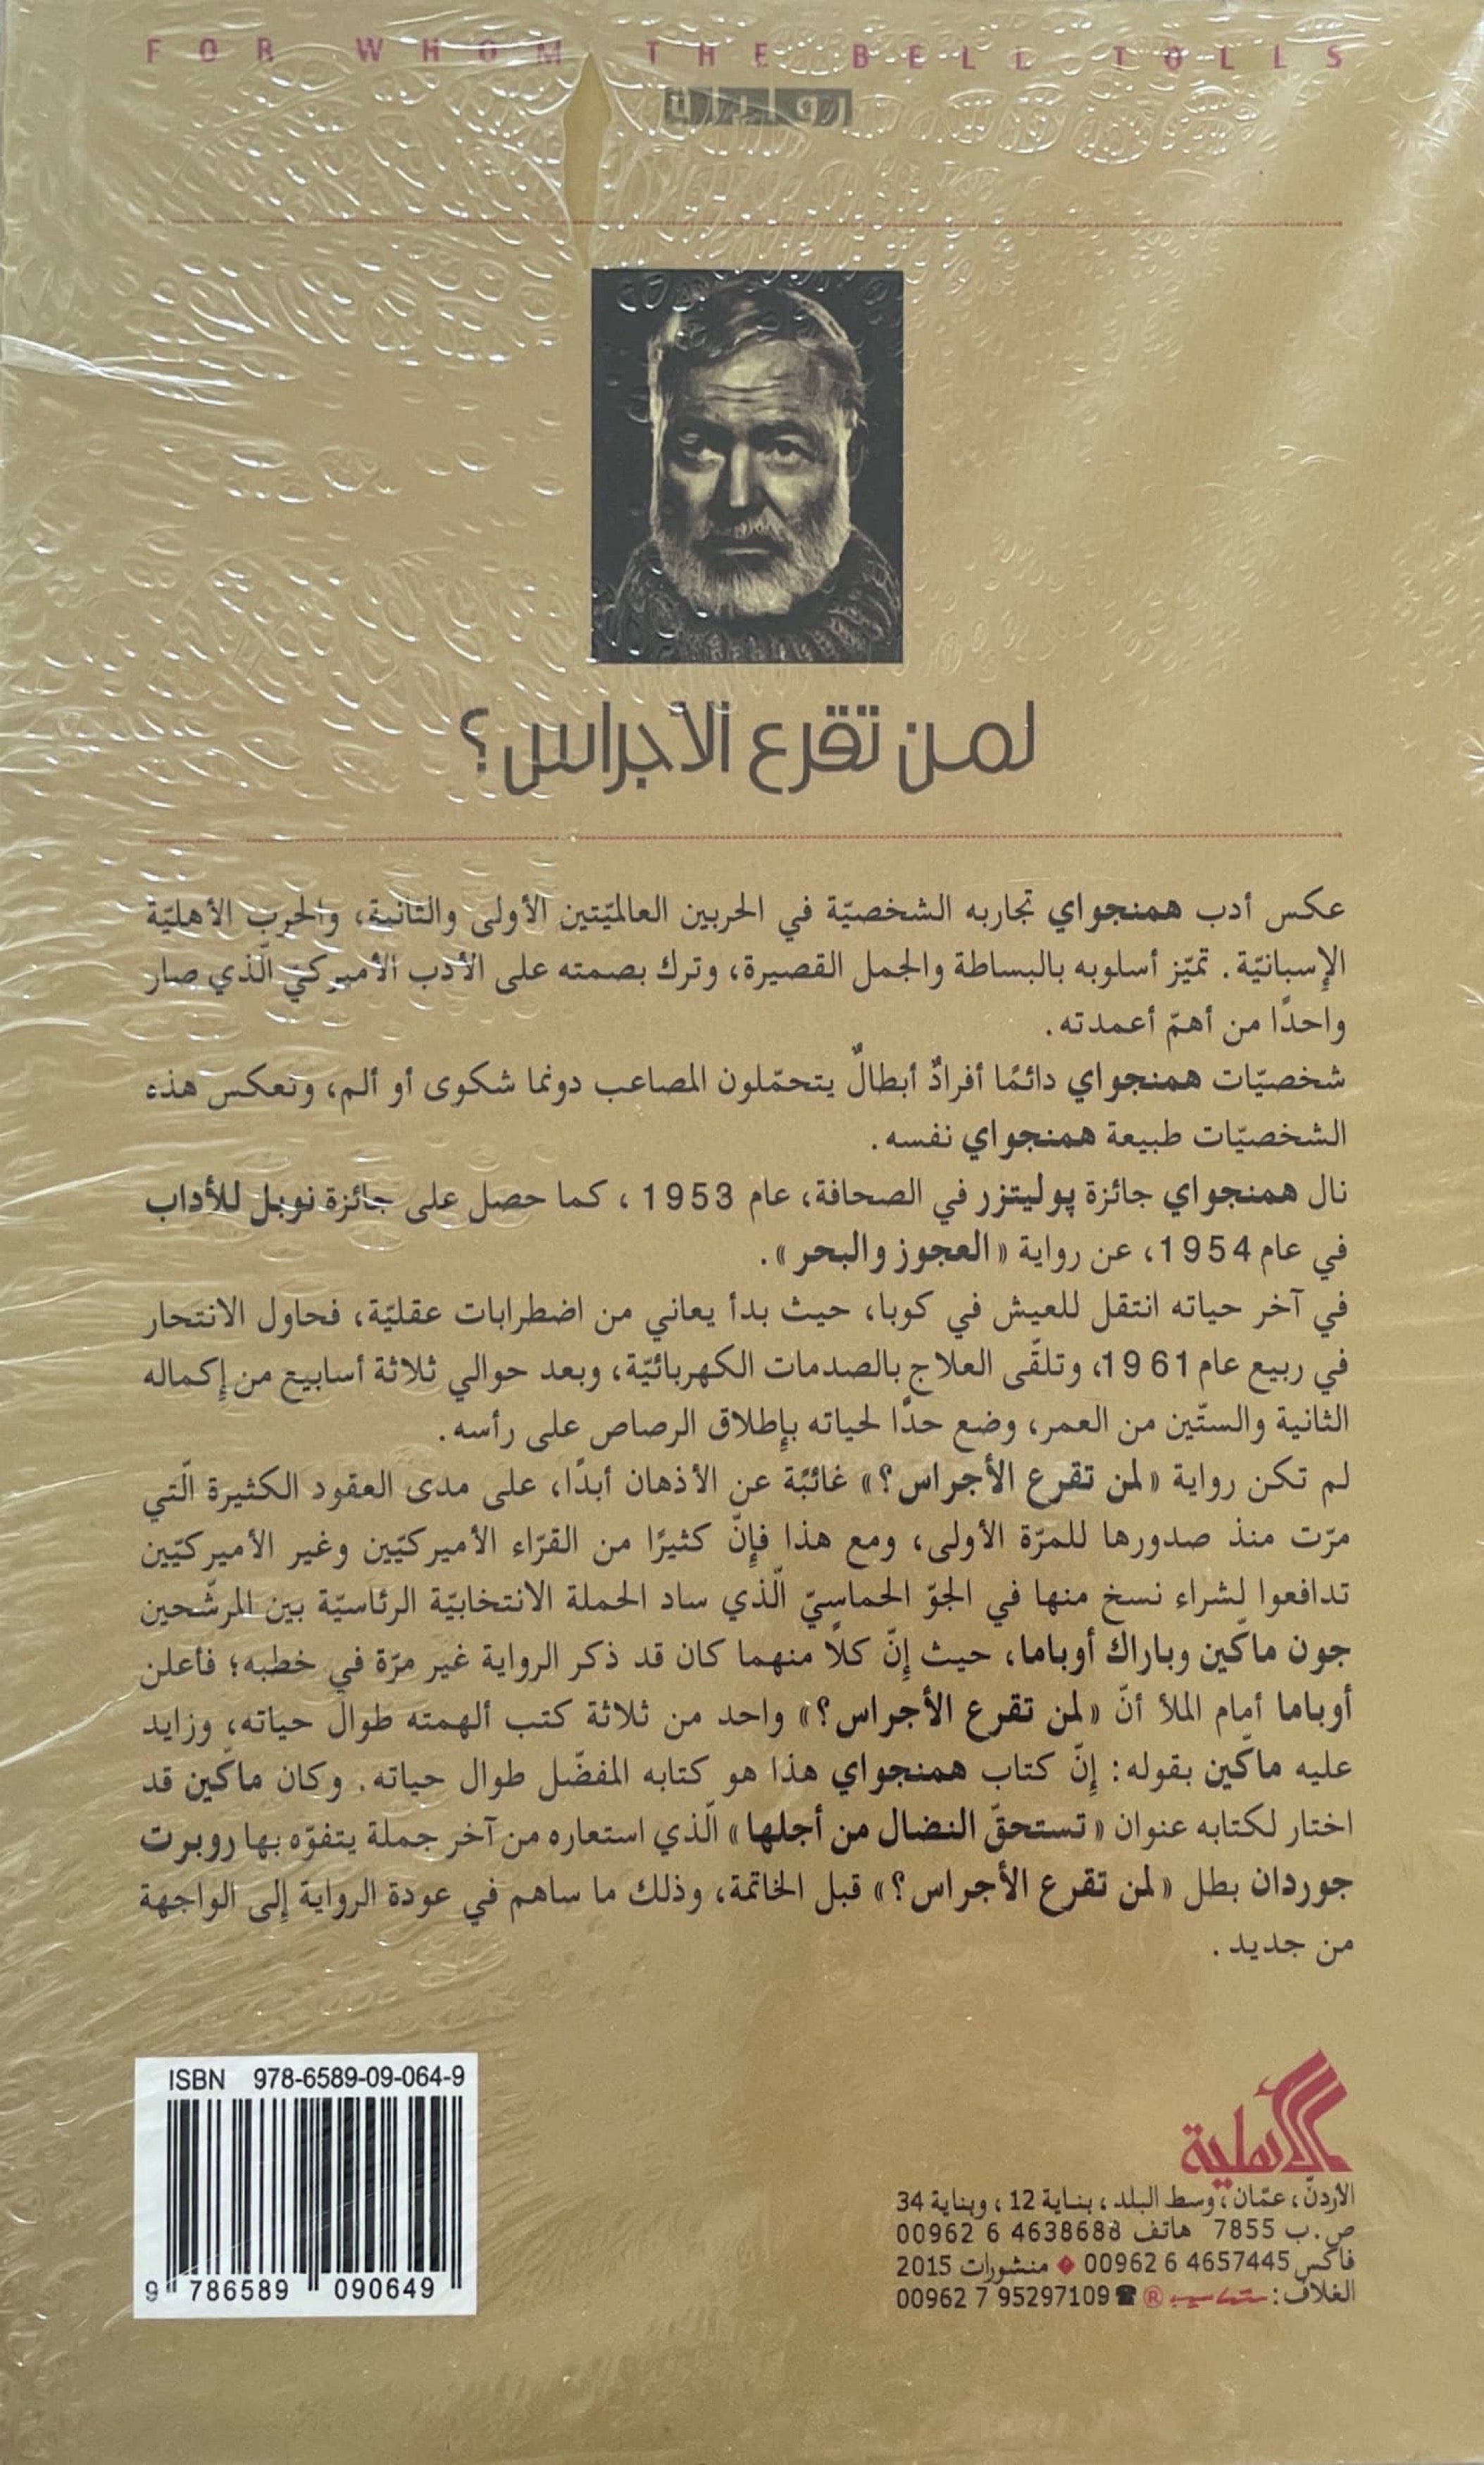 FOR WHOM THE BELL TOLLS
رواية
لمن تقرع الأجراس؟
عكس أدب همنجواي تجاربه الشخصيّة في الحربين العالميّتين الأولى والثانية، والحرب الأهليّة
الإسبانيّة. تميّز أسلوبه بالبساطة والجمل القصيرة، وترك بصمته على الأدب الأميركيّ الّذي صار
واحدًا من أهمّ أعمدته.
شخصيّات همنجواي دائمًا أفرادٌ أبطالٌ يتحمّلون المصاعب دونما شكوى أو ألم، وتعكس هذه
الشخصيّات طبيعة همنجواي نفسه.
نال همنجواي جائزة پوليتزر في الصحافة، عام 1953، كما حصل على جائزة نوبل للأداب
في عام 1954، عن رواية «العجوز والبحر».
في آخر حياته انتقل للعيش في كوبا، حيث بدأ يعاني من اضطرابات عقليّة، فحاول الانتحار
في ربيع عام 1961، وتلقّى العلاج بالصدمات الكهربائيّة، وبعد حوالي ثلاثة أسابيع من إكماله
الثانية والستّين من العمر، وضع حدًّا لحياته بإطلاق الرصاص على رأسه.
لم تكن رواية «لمن تقرع الأجراس؟» غائبًة عن الأذهان أبدًا، على مدى العقود الكثيرة الّتي
مرّت منذ صدورها للمرّة الأولى، ومع هذا فإنّ كثيرًا من القرّاء الأميركيّين وغير الأميركيّين
تدافعوا لشراء نسخ منها في الجوّ الحماسيّ الّذي ساد الحملة الانتخابيّة الرئاسيّة بين المرشّحين
جون ماكّين وباراك أوباما، حيث إنّ كلاًّ منهما كان قد ذكر الرواية غير مرّة في خطبه؛ فأعلن
أوباما أمام الملأ أنّ «لمن تقرع الأجراس؟» واحد من ثلاثة كتب ألهمته طوال حياته، وزايد
عليه ماكّين بقوله: إنّ كتاب همنجواي هذا هو كتابه المفضّل طوال حياته. وكان ماكّين قد
اختار لكتابه عنوان «تستحقّ النضال من أجلها» الّذي استعاره من آخر جملة يتفوّه بها روبرت
جوردان بطل «لمن تقرع الأجراس؟» قبل الخاتمة، وذلك ما ساهم في عودة الرواية إلى الواجهة
من جديد.
ISBN 978-6589-09-064-9
9 786589 090649
الأهلية
الأردنّ، عمّان، وسط البلد، بناية 12، وبناية 34
ص.ب 7855 هاتف 4638688 6 00962
فاكس 4657445 6 00962 ◆ منشورات 2015
الغلاف: ® ☎ 95297109 7 00962